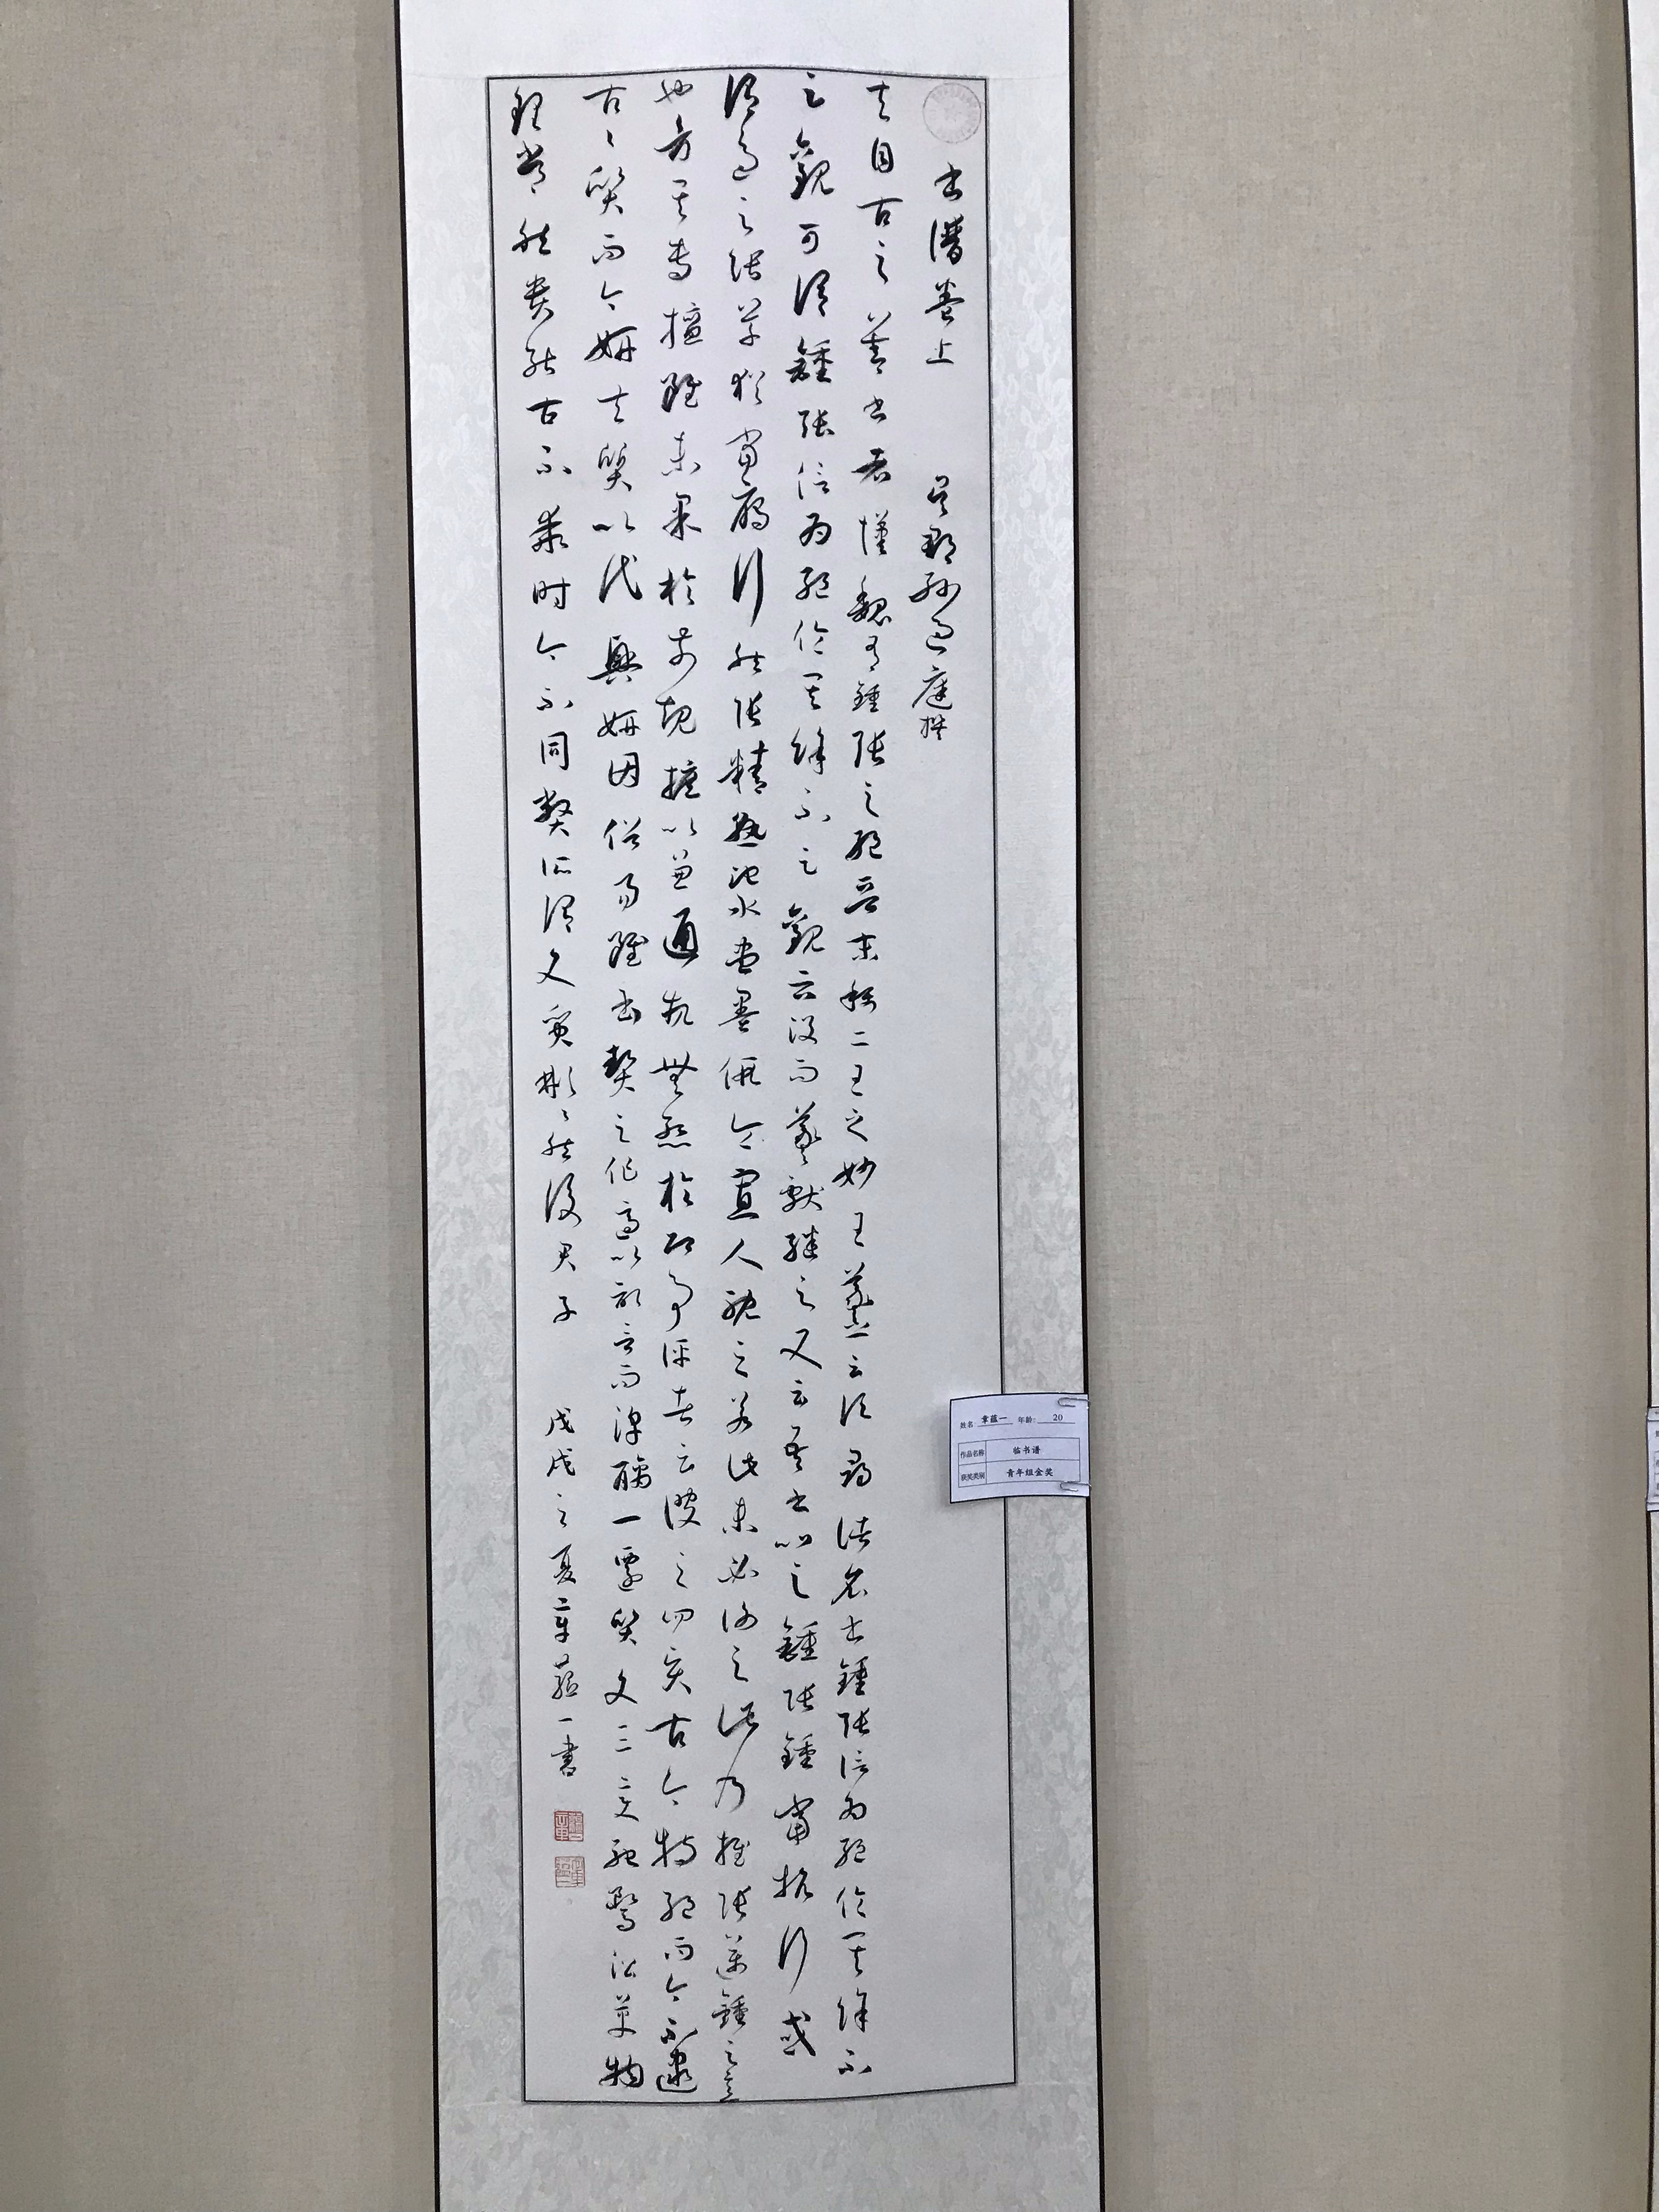 書譜卷上 吳郡孫過庭撰
夫自古之善書者漢魏有鍾張之絕晉末稱二王之妙王羲之云頃尋諸名書鍾張信為絕倫其餘不
足觀可謂鍾張信為絕倫其餘不足觀云沒而羲獻繼之又云吾書比之鍾張鍾當抗行或
謂過之張草猶當鴈行然張精熟池水盡墨假令寡人耽之若此未必謝之此乃推張邁鍾之意
也考其專擅雖未果於前規摭以兼通故無慚於即事評者云彼之四賢古今特絕而今不逮
古古質而今妍夫質以代興妍因俗易雖書契之作適以記言而淳醨一遷質文三變馳騖沿革物
理常然貴能古不乖時今不同弊所謂文質彬彬然後君子 戊戌之夏章蘊一書
姓名 章蕴一 年龄: 20
作品名称 临书谱
获奖类别 青年组金奖